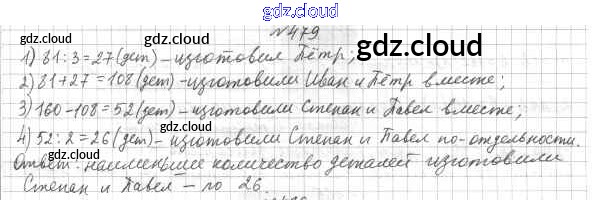 gdz.cloud
№479
1) 81:3=27(дет)-изготовил Пётр;
gdz.cloud
gdz.cloud
2) 81+27=108(дет)-изготовили Иван и Пётр вместе;
3) 160-108=52(дет)-изготовили Степан и Павел вместе;
gdz.cloud
gdz.cloud
4) 52:2=26(дет)-изготовили Степан и Павел по-отдельности.
gdz.cloud
Ответ: наименьшее количество деталей изготовили
Степан и Павел – по 26.
gdz.cloud